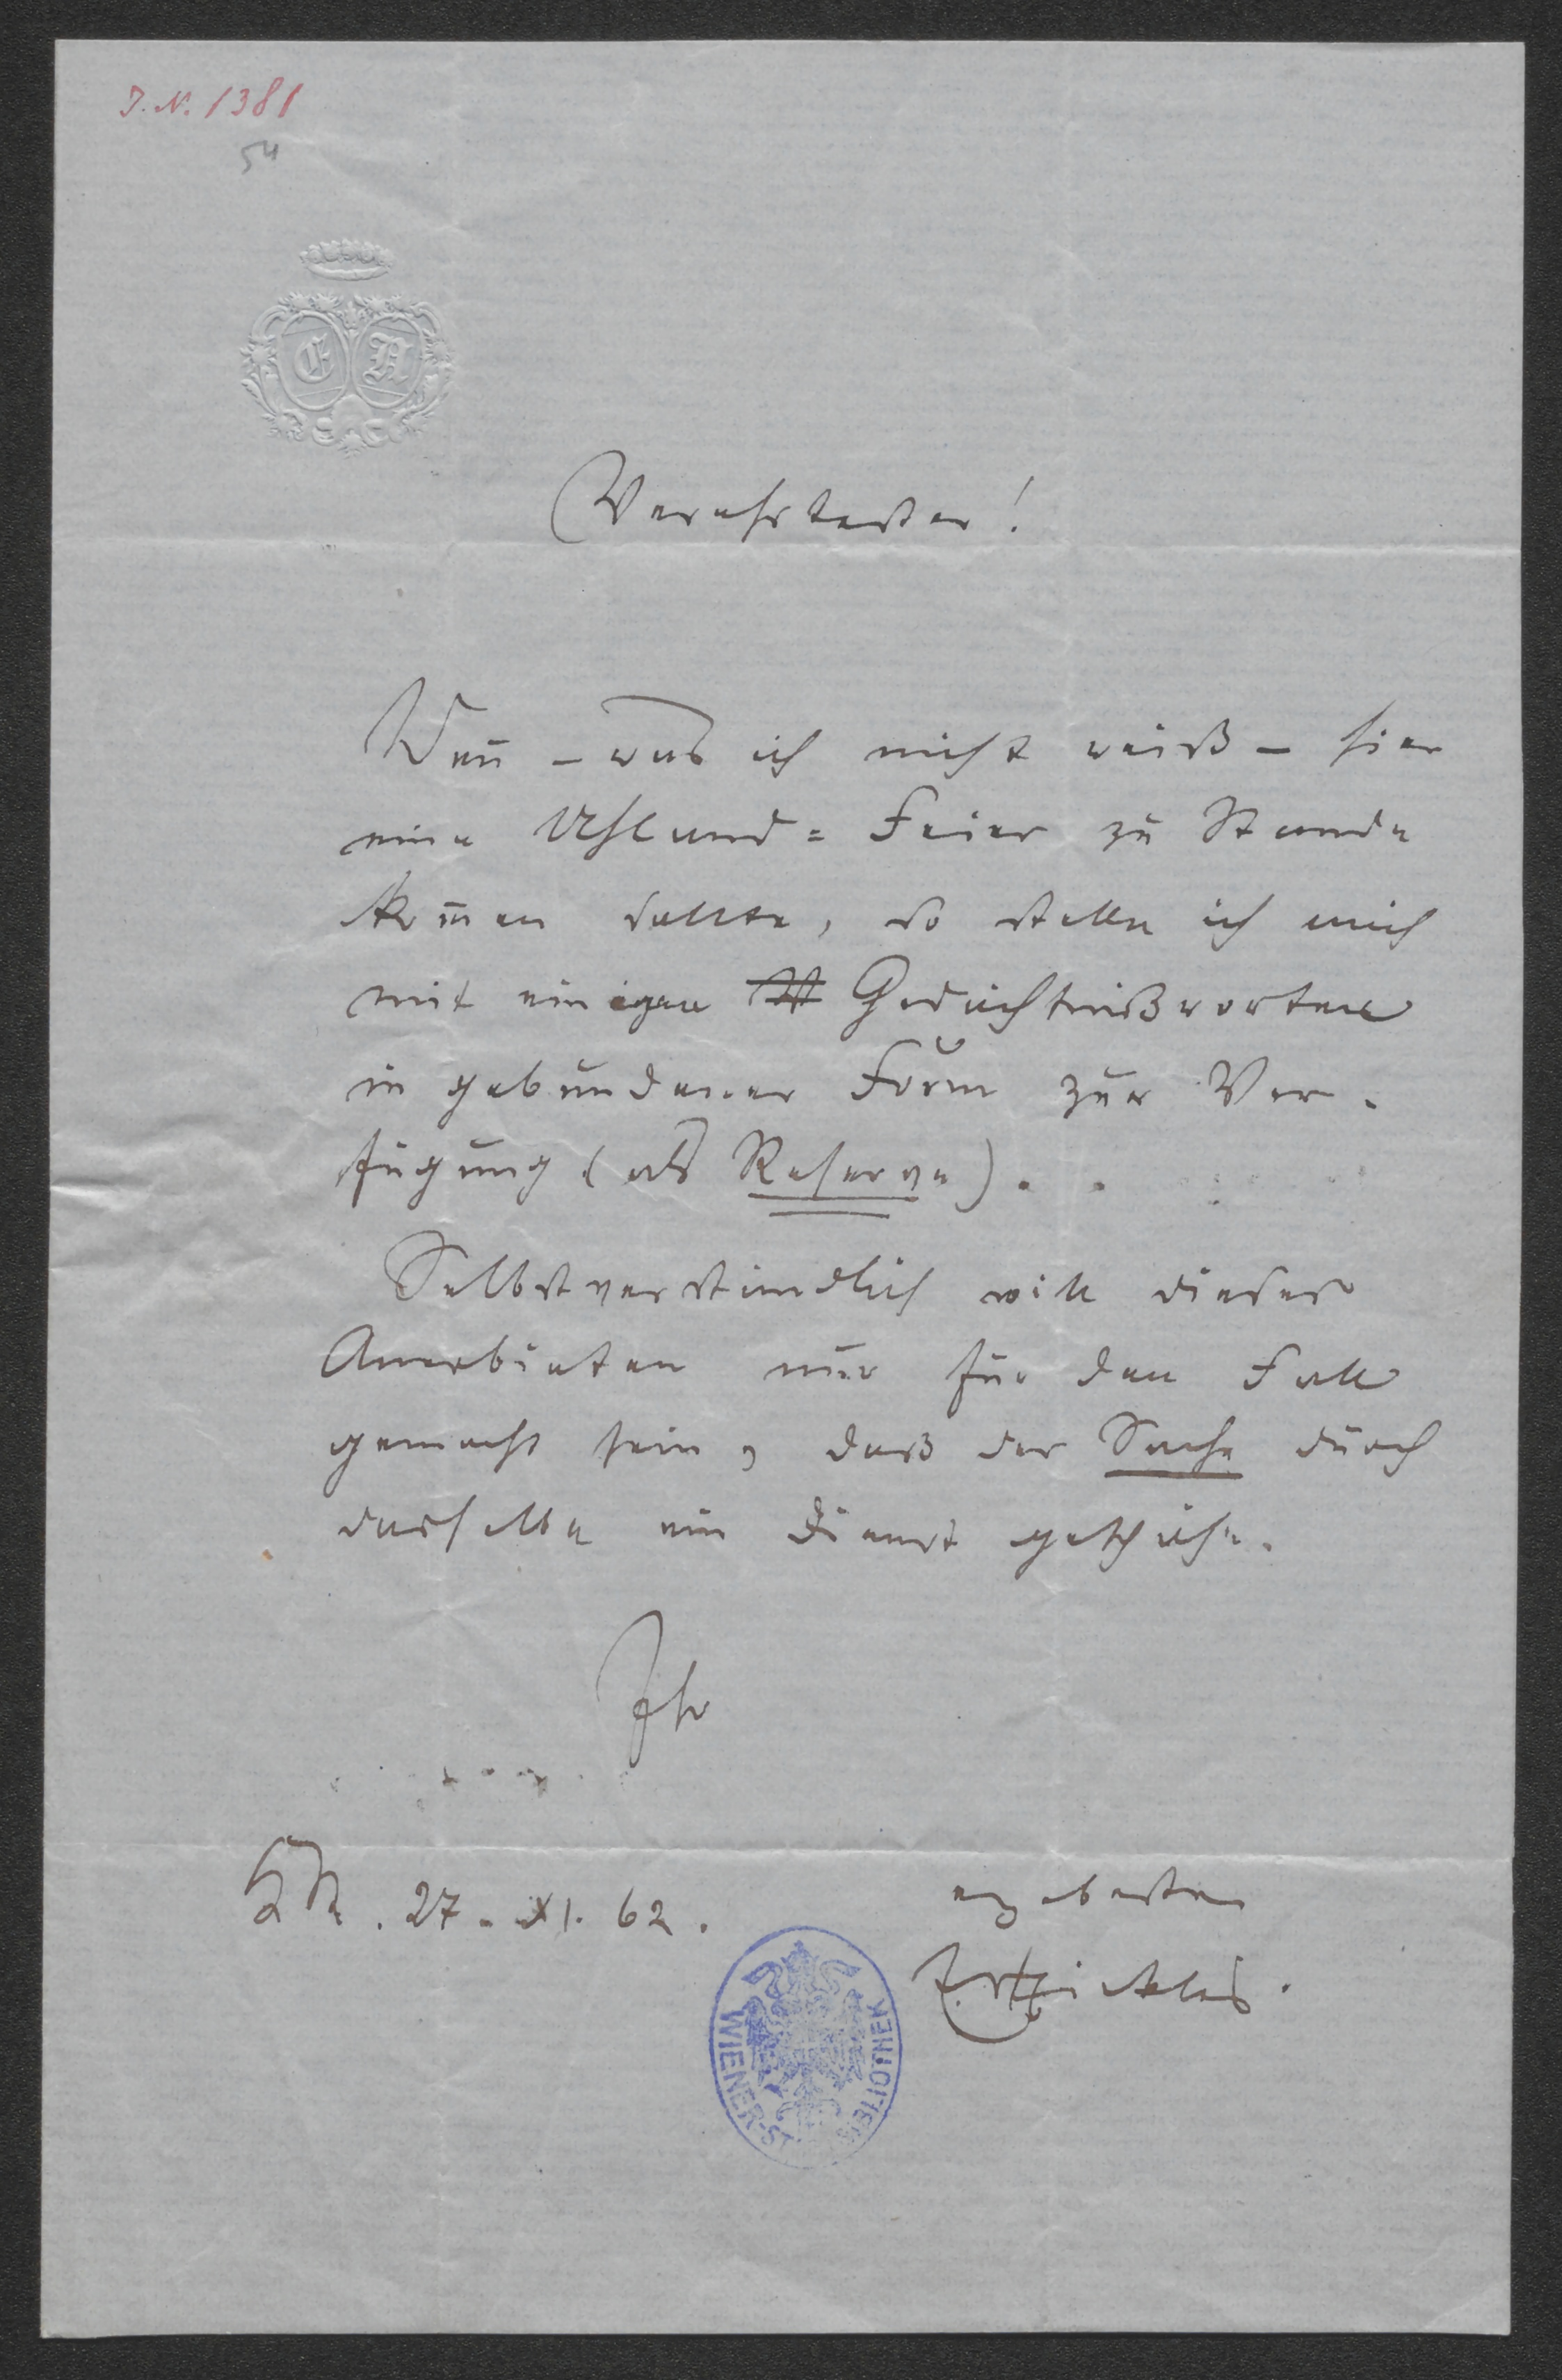 J. N. 1381
54
E N
Verehrtester!
Weñ – was ich nicht weiß – hier
eine Uhland=Feier zu Stande
kom̃en sollte, so stelle ich mich
mit einigen Gedächtnißworten
in gebundener Form zur Ver-
fügung (als Reserve).
Selbstverständlich will dieses
Anerbieten nur für den Fall
gemacht sein, daß der Sache durch
dasselbe ein Dienst geschähe.
Ihr
27. XI. 62.
ergebenster
WIENER-ST BIBLIOTHEK